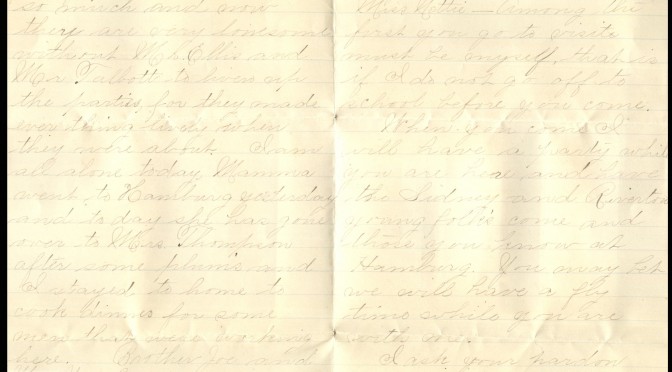 so much and now
they are very lonesome
without Mr. Ellis and
Mr Talbott to liven up
the parties, for they made
every thing lively when
they were about. I am
all alone today Mamma
went to Hamburg yesterday
and to day she has gone
over to Mrs Thompson
after some plums and
I stayed to home to
cook dinner for some
men that were working
here. Brother Joe and
Miss Mettie — Among the
first you go to visite
must be myself, that is
if I do not go off to
school before you come.
When you come I
will have a party while
you are hear and have
the Sidney and Riverton
young folks come and
those you know at
Hamburg. You may bet
we will have a fly
time while you are
with me.
I ask your pardon